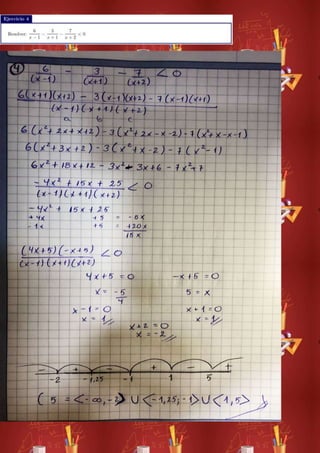 Ejercicio 4
Resolver: 6/(x − 1) − 3/(x + 1) − 7/(x + 2) < 0
4) 6/(x-1) - 3/(x+1) - 7/(x+2) < 0
6(x+1)(x+2) - 3(x-1)(x+2) - 7(x-1)(x+1)
(x-1)(x+1)(x+2)
a b c
6(x²+2x+x+2)-3(x²+2x-x-2)-7(x²+x-x-1)
6(x²+3x+2)-3(x²+x-2)-7(x²-1)
6x²+18x+12-3x²-3x+6-7x²+7
-4x²+15x+25 < 0
(x-1)(x+1)(x+2)
-4x²+15x+25
+4x +5 = -5x
-1x +5 = +20x
15x
(4x+5)(-x+5) < 0
(x-1)(x+1)(x+2)
4x+5=0 -x+5=0
x=-5/4 5=x
x-1=0 x+1=0
x=1 x=1
x+2=0
x=-2
- + - + - +
-2 -1,25 -1 1 5
( S = <-∞,-2> U <-1,25;-1> U <1,5> )